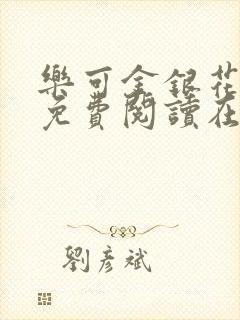 樂可金銀花
免費閱讀在
劉彥斌